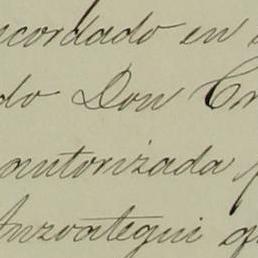 cordado en
do Don
autorizada
Anzoategui